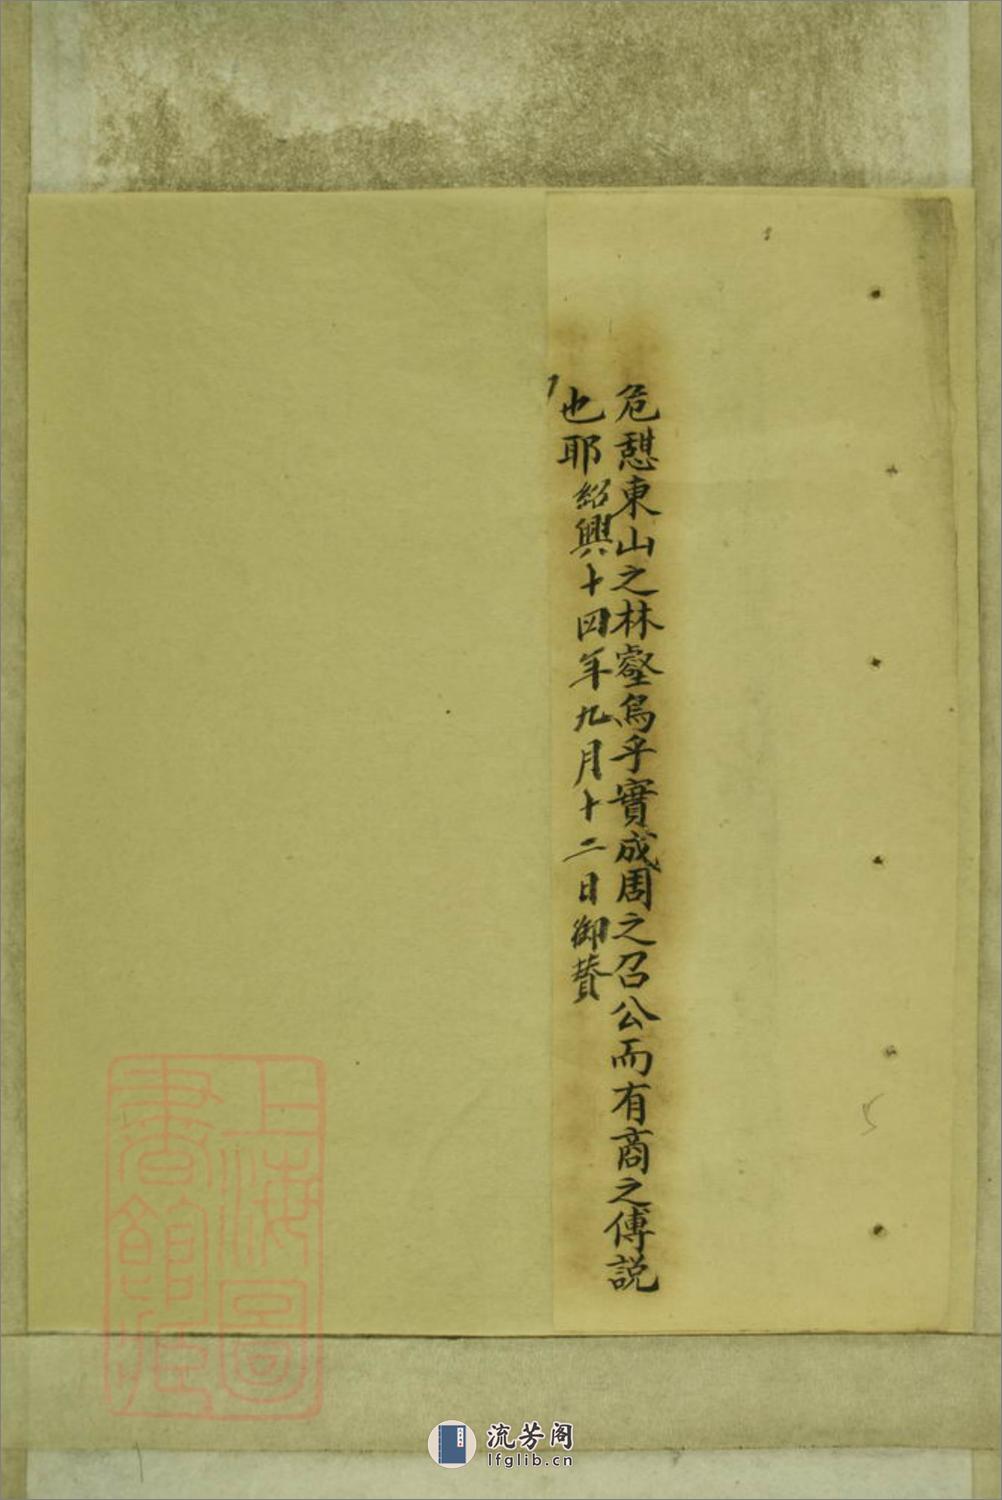 危憇東山之林壑烏乎實成周之召公而有商之傅説
也耶紹興十四年九月十二日御賛
上海圖書館藏
流芳阁
lfglib.cn